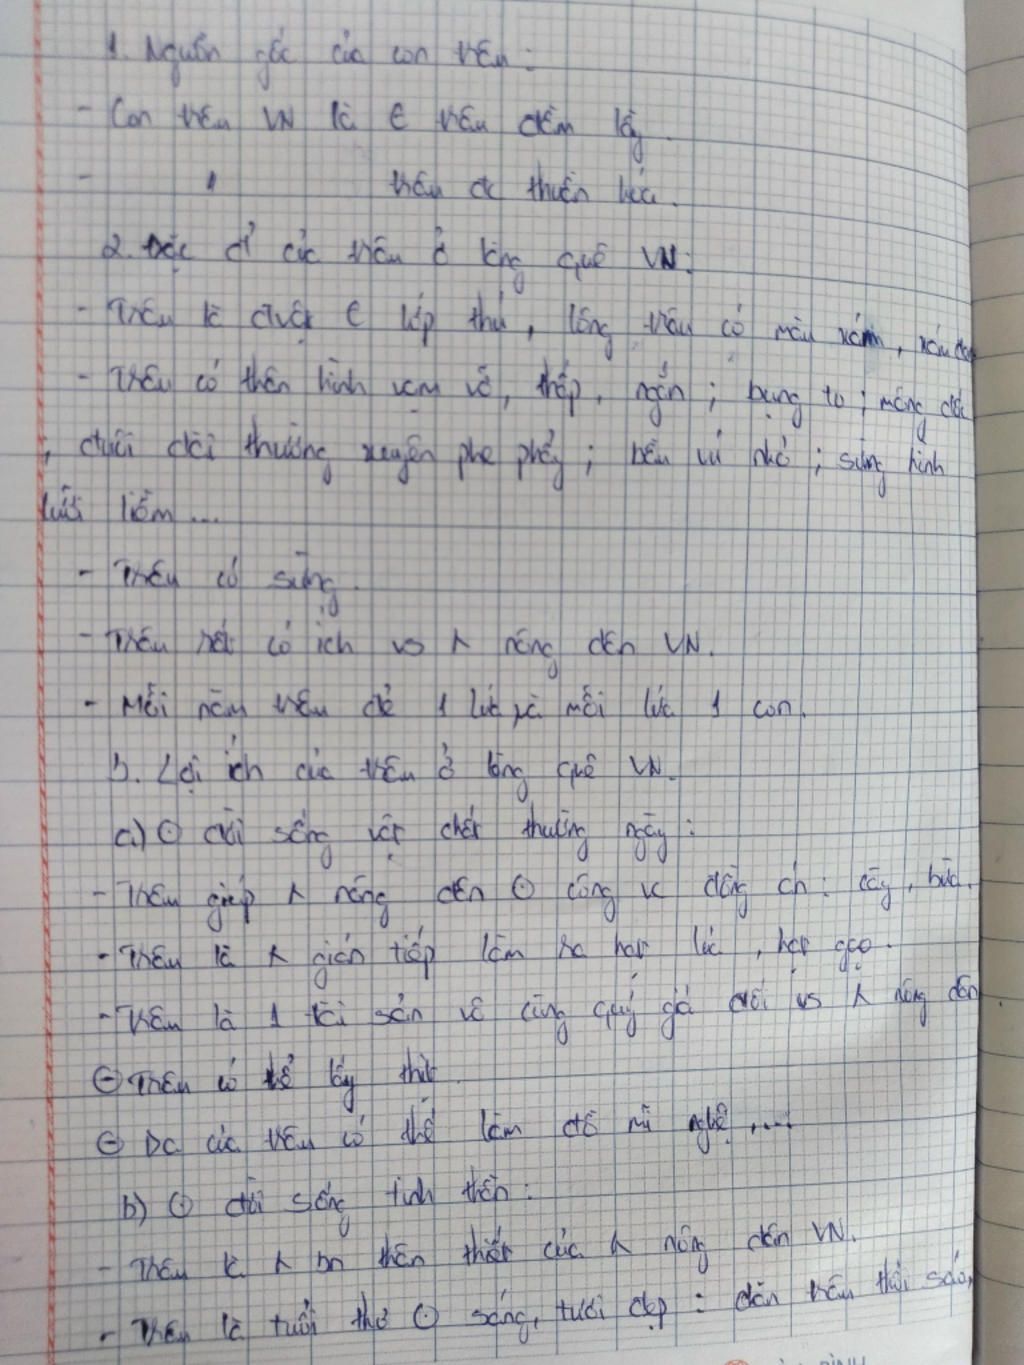 1. Nguồn gốc của con trâu:
- Con trâu VN là ∈ trâu đầm lầy.
- " trâu đc thuần hóa.
2. Đặc đ' của trâu ở làng quê VN:
- Trâu là đvật ∈ lớp thú, lông trâu có màu xám, xám đen
- Trâu có thân hình vạm vỡ, thấp, ngắn; bụng to; mông dốc
; đuôi dài thường xuyên phe phẩy; bầu vú nhỏ; sừng hình
lưỡi liềm...
- Trâu có sừng.
- Trâu rất có ích vs ng nông dân VN.
- Mỗi năm trâu đẻ 1 lứa và mỗi lứa 1 con.
3. Lợi ích của trâu ở làng quê VN.
a) ⊙ đời sống vật chất thường ngày:
- Trâu giúp ng nông dân ⊙ công vc đồng áng: cày, bừa.
- Trâu là ng gián tiếp làm ra hạt lúa, hạt gạo.
- Trâu là 1 tài sản vô cùng quý giá đối vs ng nông dân.
⊖ Trâu có thể lấy thịt.
⊖ Da của trâu có thể làm đồ mĩ nghệ,....
b) ⊙ đời sống tinh thần:
- Trâu là ng bn thân thiết của ng nông dân VN.
- Trâu là tuổi thơ ⊙ sáng, tươi đẹp: dắn trâu thổi sáo,